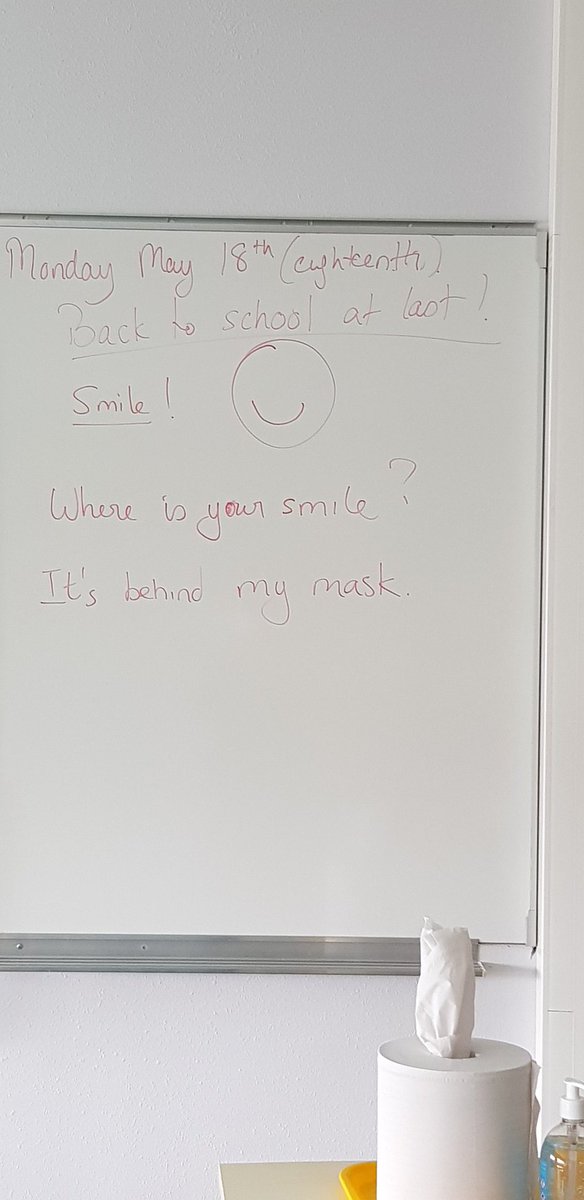 Monday May 18th (eighteenth).
Back to school at last!
Smile!
Where is your smile?
It's behind my mask.